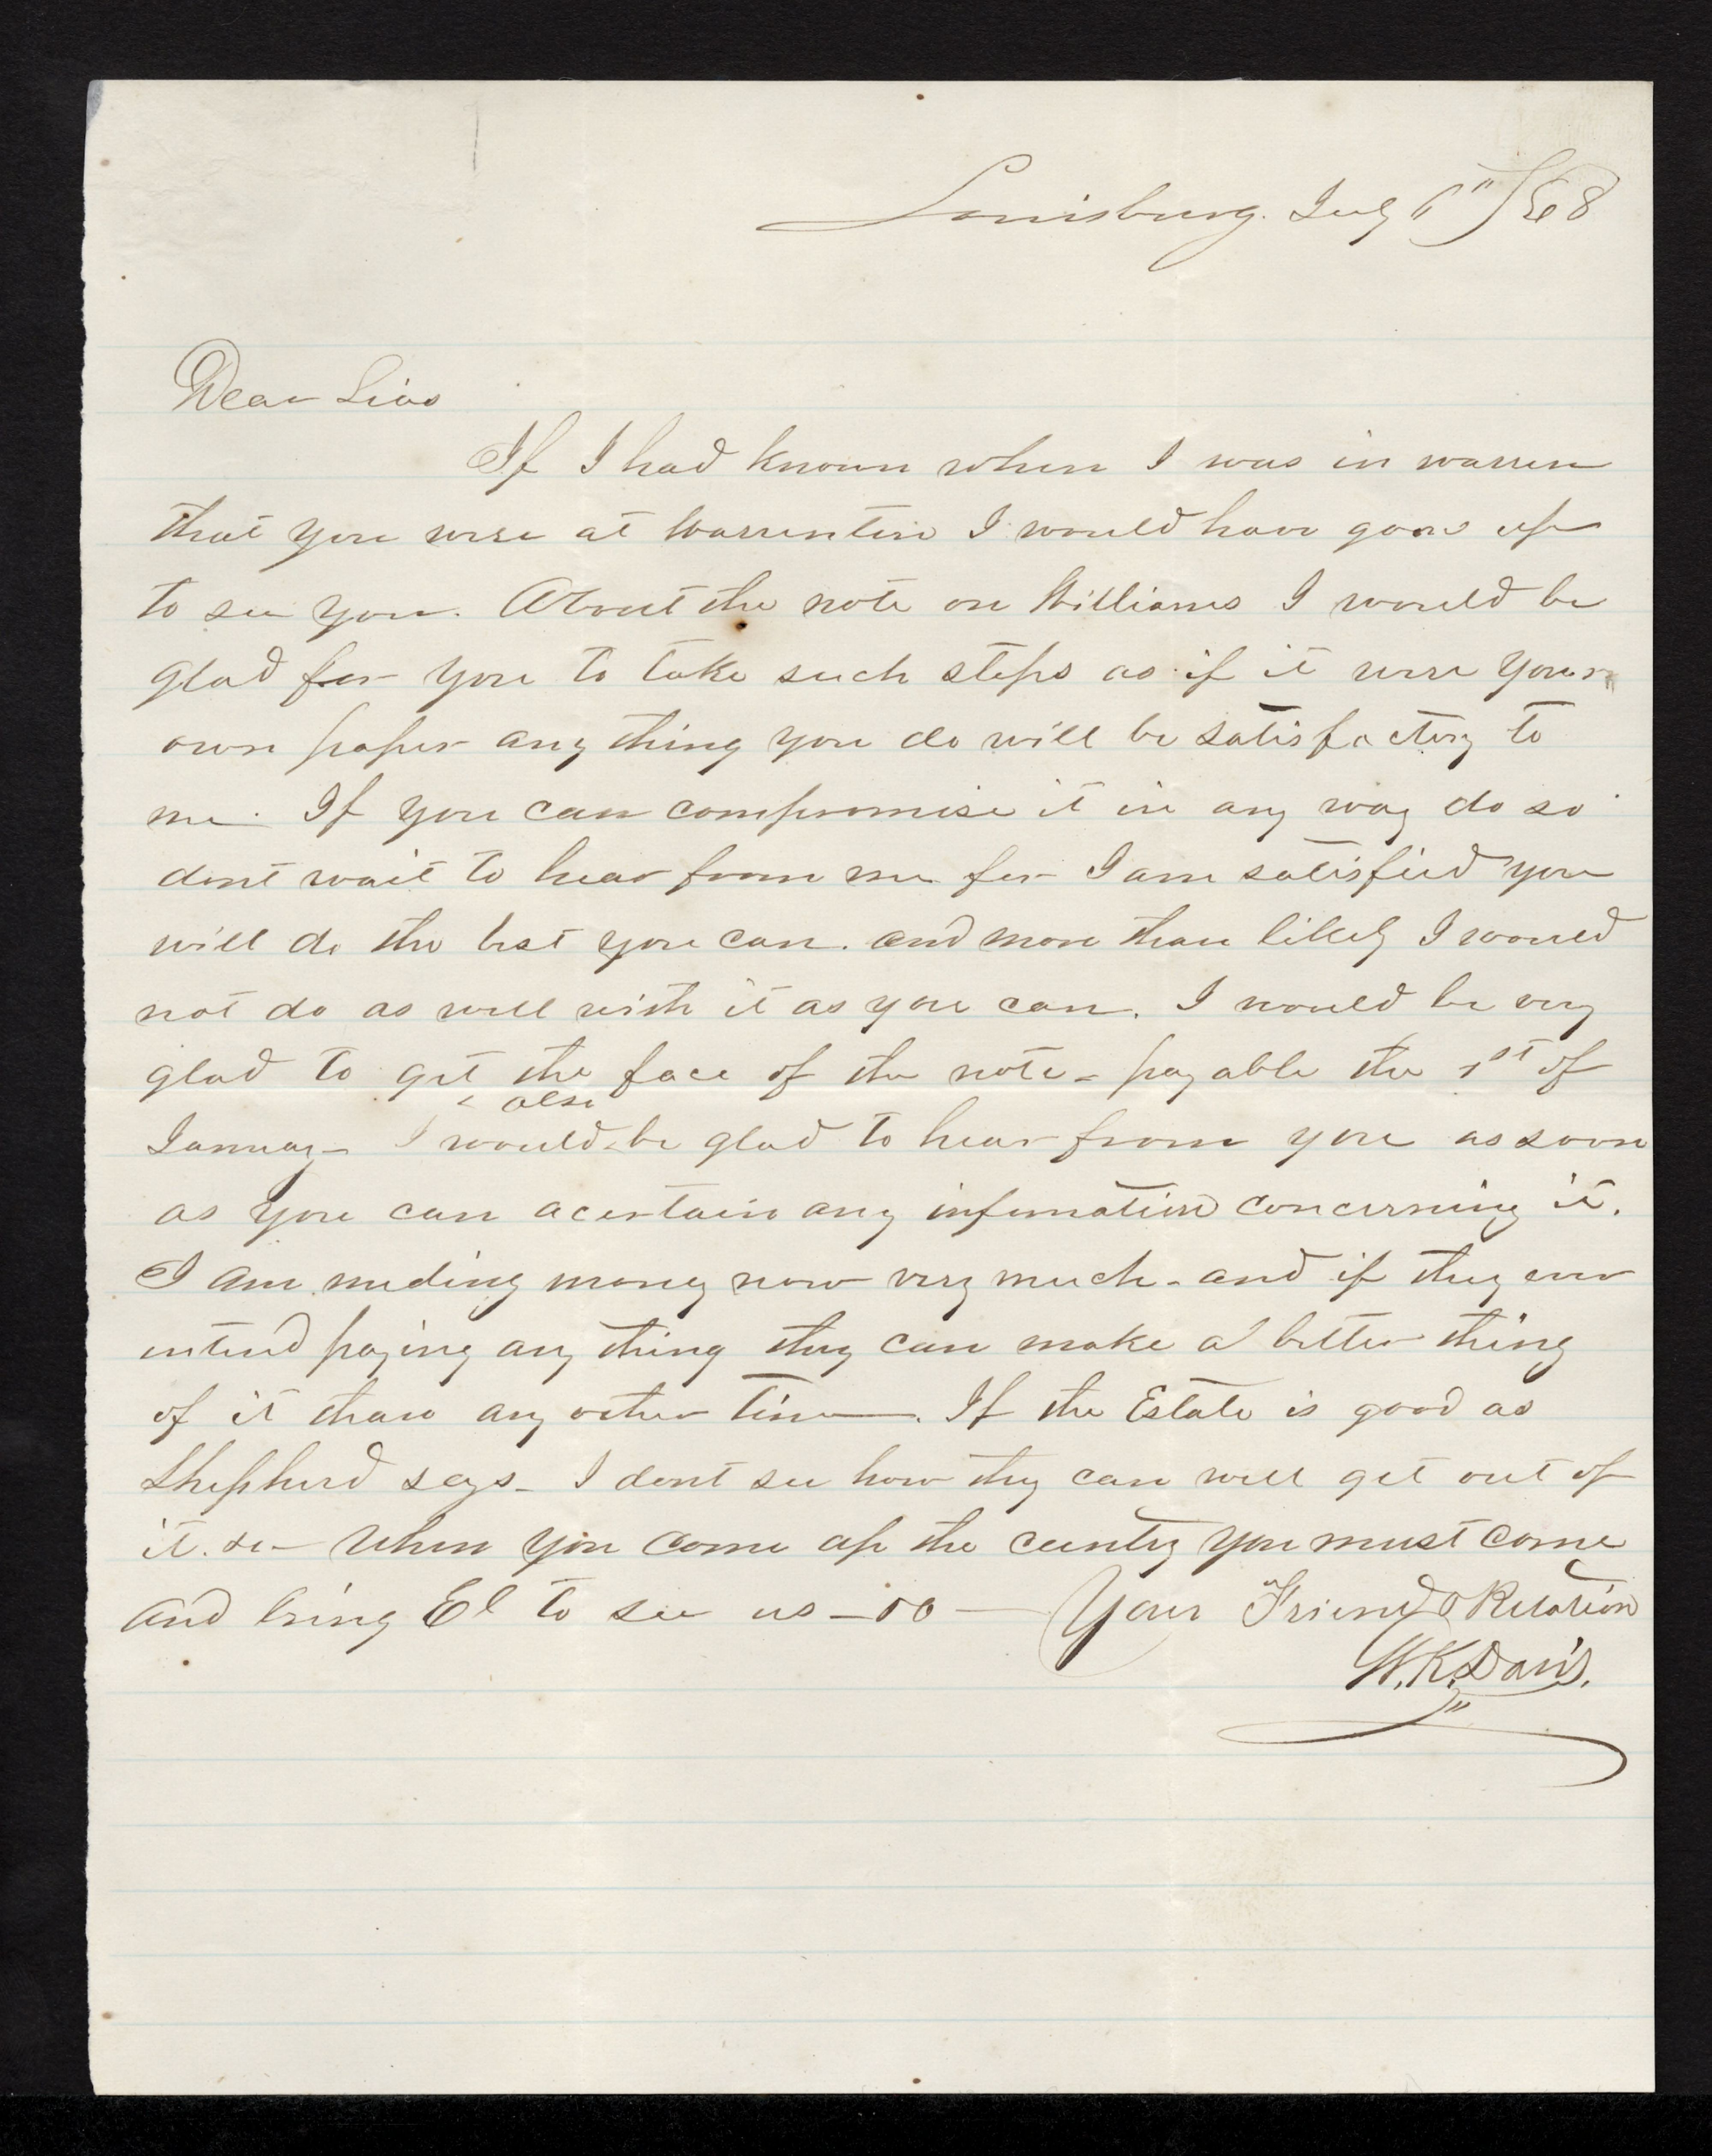 Louisburg. July 6" /68
Dear Sims
If I had known when I was in warren
that you were at Warrenton I would have gone up
to see you. About the note on Williams I would be
glad for you to take such steps as if it were your
own paper any thing you do will be satisfactory to
me. If you can compromise it in any way do so
dont wait to hear from me for I am satisfied you
will do the best you can. and more than likely I would
not do as well with it as you can. I would be very
glad to get the face of the note - payable the 1st of
January - I would also be glad to hear from you as soon
as you can acertain any infomation concerning it.
I am needing money now very much - and if they ever
intend paying any thing they can make a better thing
of it than any other time. If the Estate is good as
Shepherd says - I dont see how they can well get out of
it. &c - When you come up the country you must come
and bring El to see us - Your Friend & Relation
W. K. Davis.